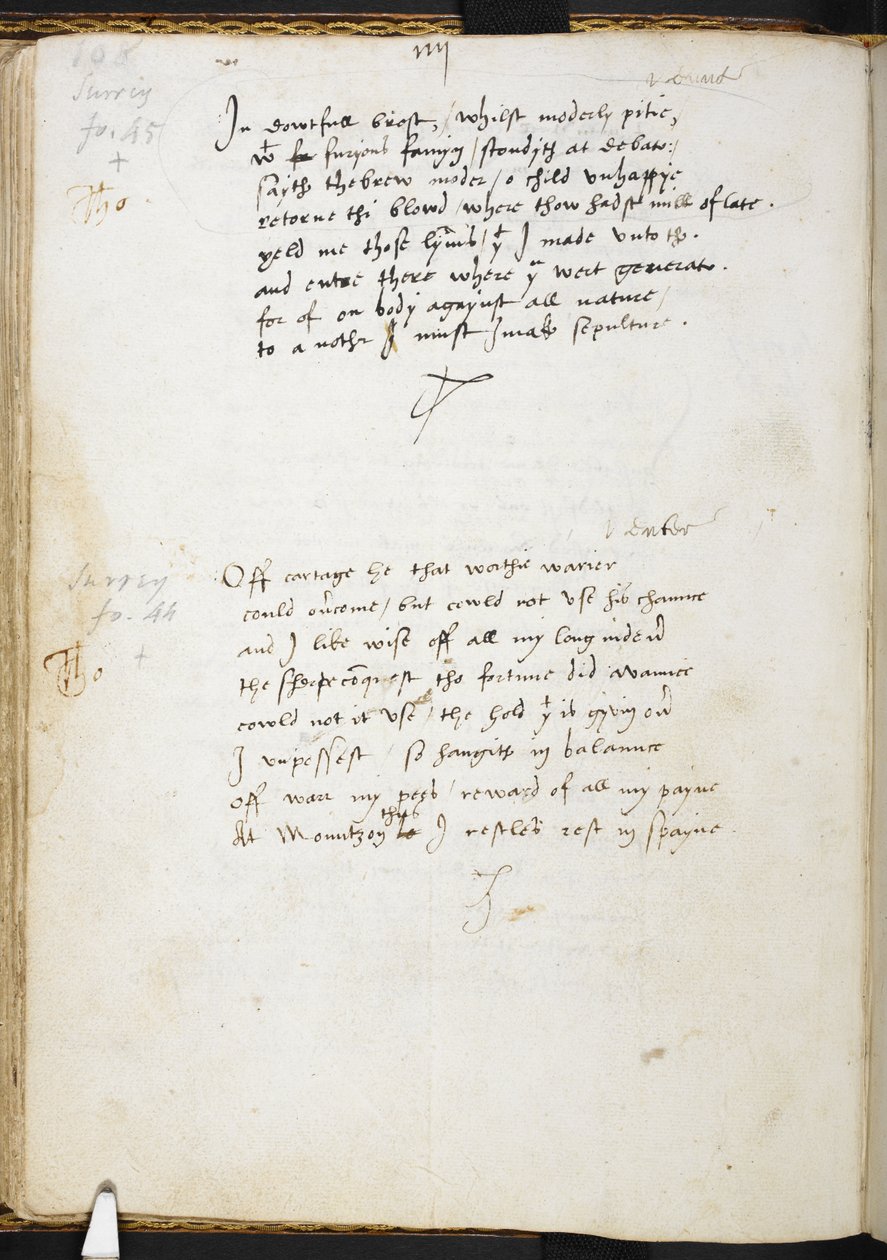 108
Surrey
fo. 45
+
Tho
In dowtfull brest, / whilst moderly pitie,
wt furyous famyn / stondyth at debate: /
sayth thebrew moder / o child vnhappye
retorne thi blowd / where thow hadst milk of late .
yeld me those lymbs / yt I made vnto the .
and entre there where yu wert generate .
for of on body agaynst all nature /
to a nothr I must I make sepulture .
Surrey
fo. 44
+
Tho
Off cartage he that worthie warier
could ouercome / but cowld not vse his chaunce
and I like wise off all my long indeuer
the sherpe conquest tho fortune did avaunce
cowld not it vse / the hold yt is gyvin ouer
I vnpossest / so hangith in balaunce
Off warr my pees / reward of all my payne
At Mountzon thus I restles rest in spayne .